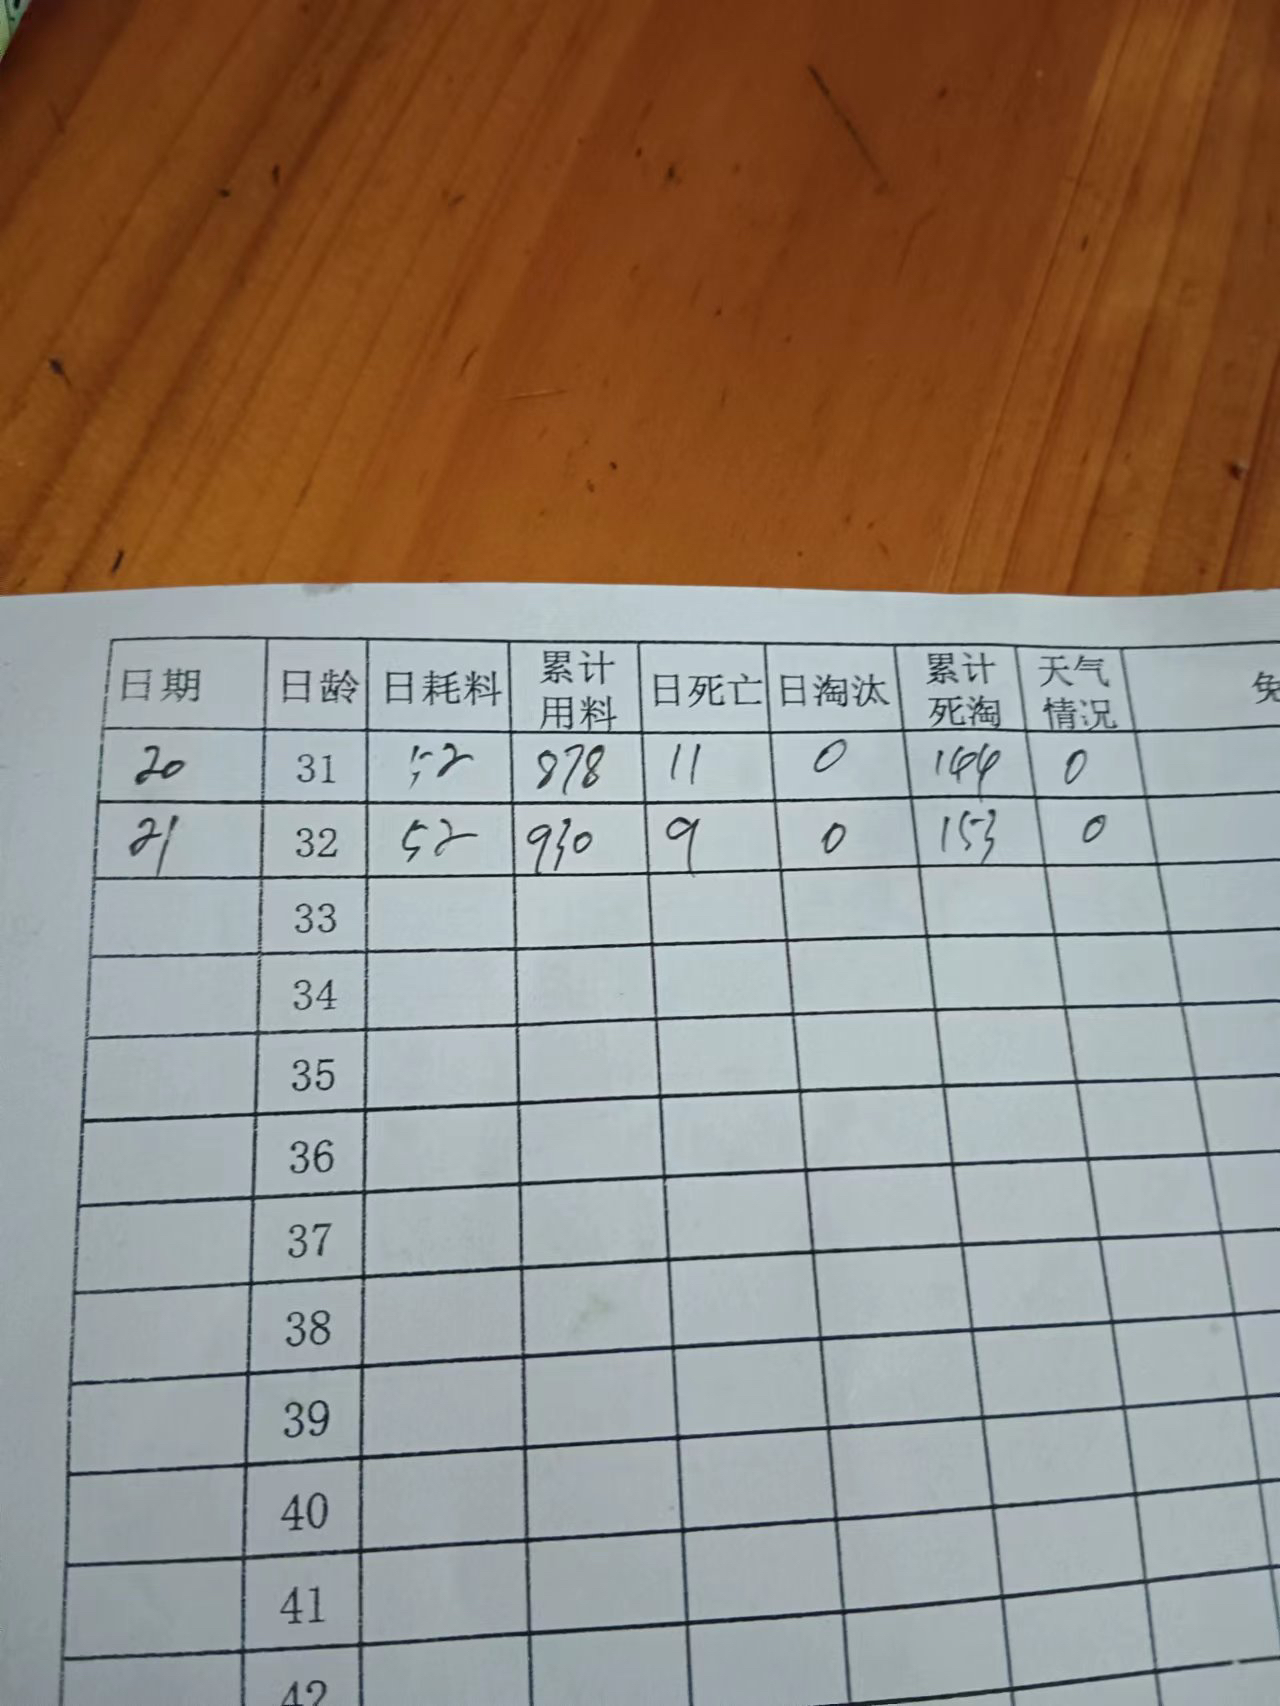 日期 日龄 日耗料 累计用料 日死亡 日淘汰 累计死淘 天气情况 免
20 31 52 878 11 0 144 0
21 32 52 930 9 0 153 0
33
34
35
36
37
38
39
40
41
42